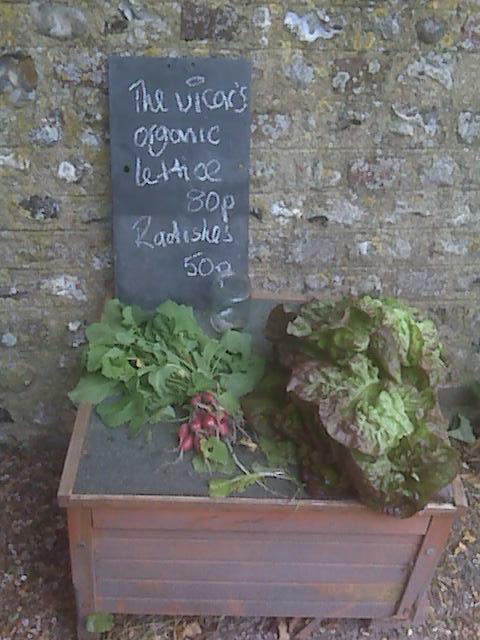 The vicar's
organic
lettice
80p
Radishes
50p